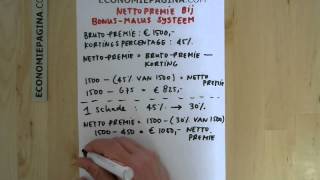 ECONOMIEPAGINA.COM
NETTOPREMIE BIJ
BONUS-MALUS SYSTEEM
BRUTO-PREMIE: € 1500,-
KORTINGSPERCENTAGE: 45%
NETTO-PREMIE = BRUTO-PREMIE -
KORTING
1500 - (45% VAN 1500) = NETTO
PREMIE
1500 - 675 = € 825,-
1 SCHADE: 45% → 30%
NETTO PREMIE = 1500 - (30% VAN 1500)
1500 - 450 = € 1050,- NETTO
PREMIE